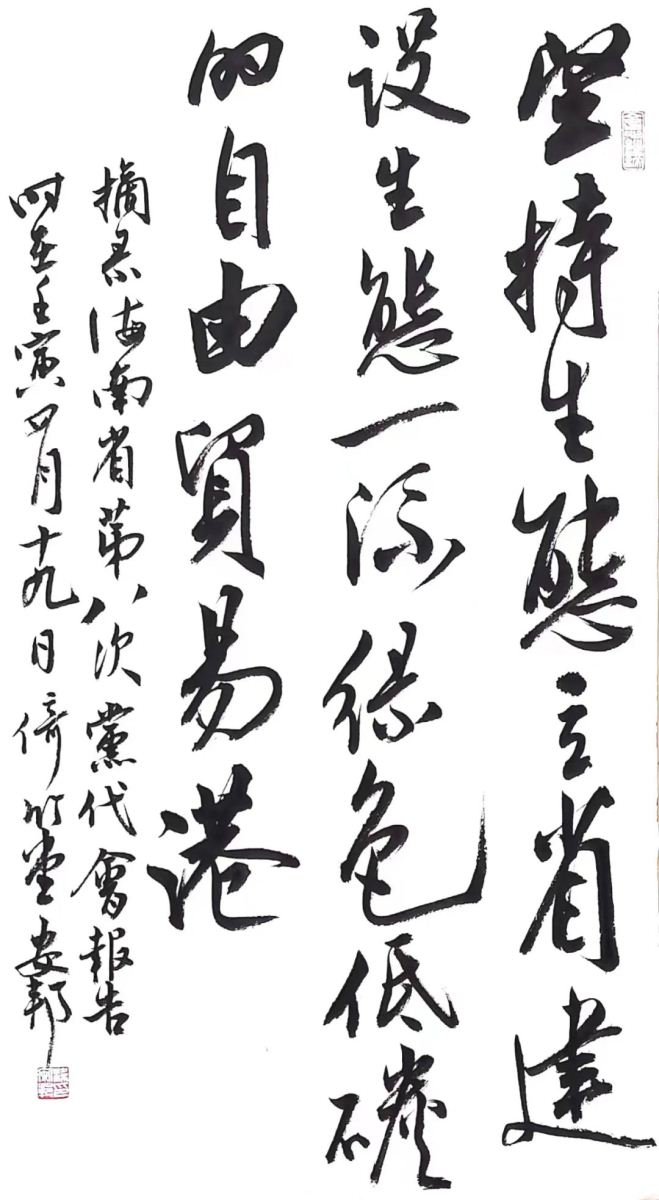 坚持生態立省建
设生態一流绿色低碳
的自由貿易港
摘录海南省第八次黨代會報告
时在壬寅四月十九日倚竹堂邦